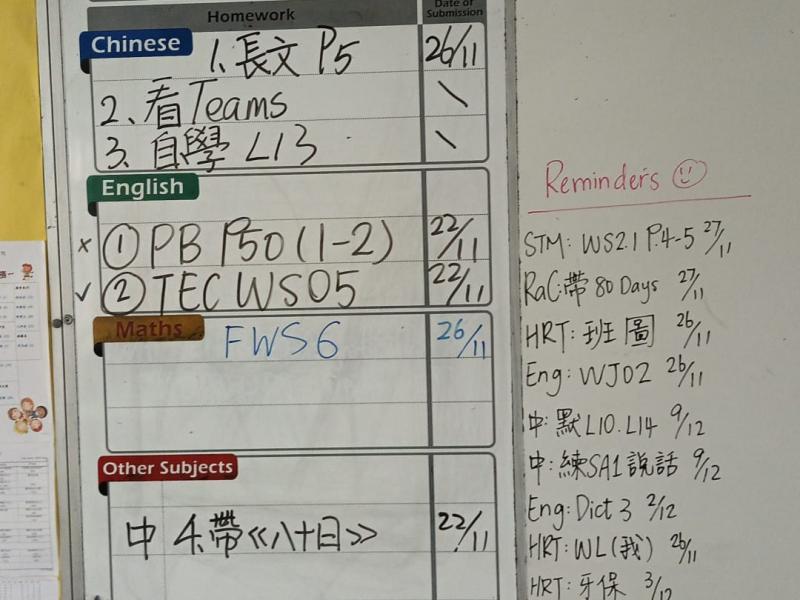 Homework Date of Submission
Chinese 1. 長文 P5 26/11
2. 看Teams \
3. 自學 L13 \
English
x ① PB P50 (1-2) 22/11
✓ ② TEC WS05 22/11
Maths FWS6 26/11
Other Subjects
中 4. 帶《八十日》 22/11
Reminders ☺
STM: WS2.1 P.4-5 27/11
RaC: 帶 80 Days 27/11
HRT: 班圖 26/11
Eng: WJ02 26/11
中: 默L10. L14 9/12
中: 練SA1 說話 9/12
Eng: Dict 3 2/12
HRT: WL (我) 26/11
HRT: 牙保 3/12